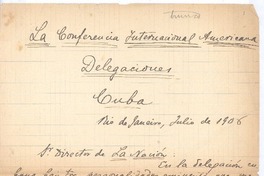 La Conferencia Internacional Americana
Delegaciones
Cuba
Rio de Janeiro, Julio de 1906
Sr Director de La Nación:
En la delegación